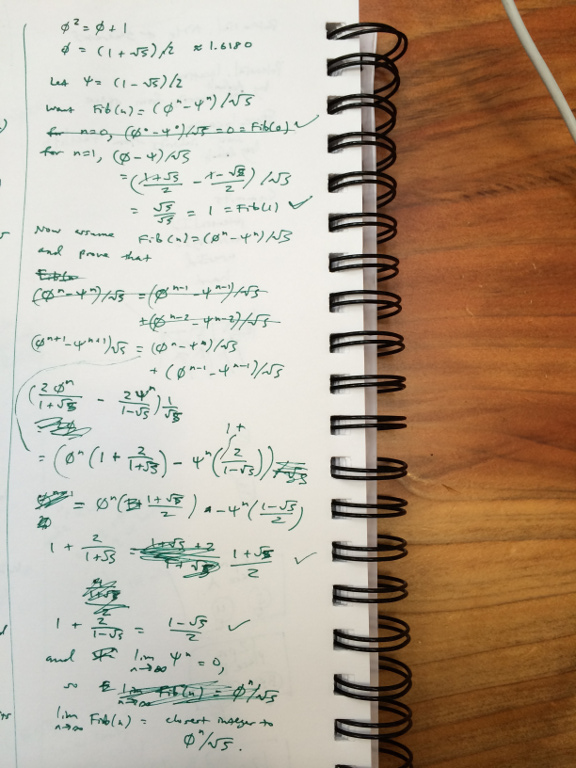 φ² = φ + 1
φ = (1 + √5)/2 ≈ 1.6180
Let Ψ = (1 - √5)/2
want Fib(n) = (φⁿ - Ψⁿ)/√5
for n=0, (φ⁰ - Ψ⁰)/√5 = 0 = Fib(0) ✓
for n=1, (φ - Ψ)/√5
= (1+√5/2 - 1-√5/2)/√5
= √5/√5 = 1 = Fib(1) ✓
Now assume Fib(n) = (φⁿ - Ψⁿ)/√5
and prove that
(φⁿ - Ψⁿ)/√5 = (φⁿ⁻¹ - Ψⁿ⁻¹)/√5
+ (φⁿ⁻² - Ψⁿ⁻²)/√5
(φⁿ⁺¹ - Ψⁿ⁺¹)√5 = (φⁿ - Ψⁿ)/√5
+ (φⁿ⁻¹ - Ψⁿ⁻¹)/√5
(2φⁿ/1+√5 - 2Ψⁿ/1-√5) 1/√5
1+
= (φⁿ(1 + 2/1+√5) - Ψⁿ(2/1-√5))
= φⁿ(1+√5/2) - Ψⁿ(1-√5/2)
1 + 2/1+√5 = 1+√5/2 ✓
1 + 2/1-√5 = 1-√5/2 ✓
and lim n→∞ Ψⁿ = 0,
so lim n→∞ Fib(n) = φⁿ/√5
lim n→∞ Fib(n) = closest integer to
φⁿ/√5.